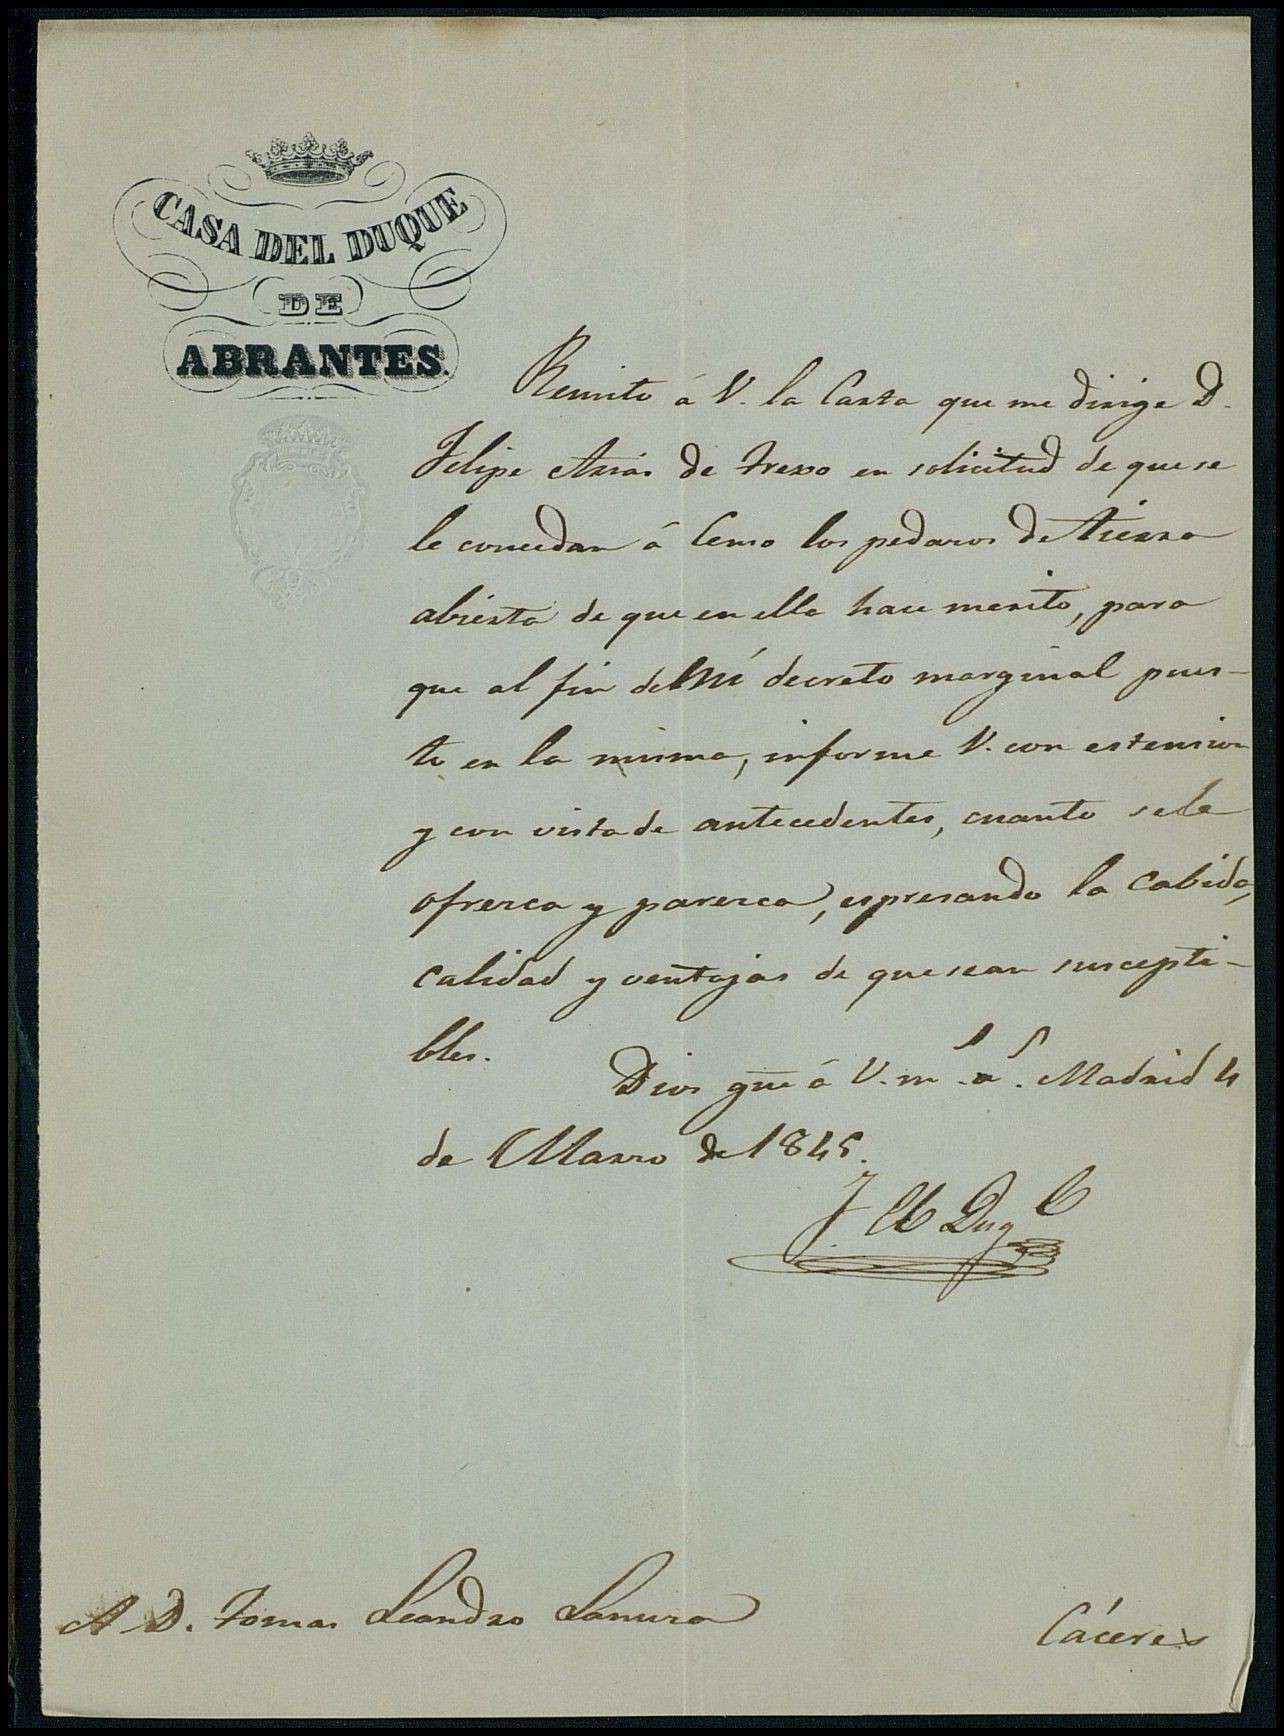 CASA DEL DUQUE
DE
ABRANTES.
Remito á V. la Carta que me dirige D.
Felipe Arias de Trexo en solicitud de que se
le concedan á Censo los pedazos de tierra
abierta de que en ella hace merito, para
que al fin del mi decreto marginal pues-
to en la misma, informe V. con estension
y con vista de antecedentes, cuanto se le
ofrezca y parezca, espresando la cabida,
calidad y ventajas de que sean suscepti-
bles.
Dios gue á V. m.s a.s Madrid 4
de Marzo de 1845.
A D. Tomas Leandro
Cáceres